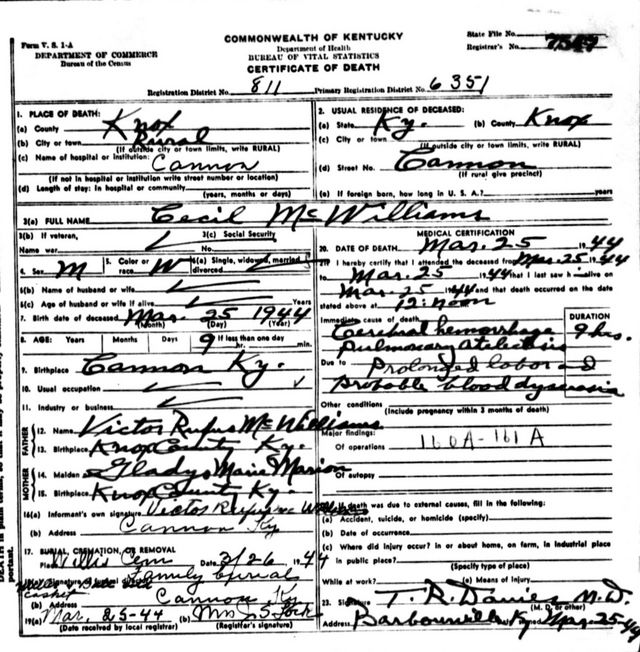 Form V. S. 1-A
DEPARTMENT OF COMMERCE
Bureau of the Census
COMMONWEALTH OF KENTUCKY
Department of Health
BUREAU OF VITAL STATISTICS
CERTIFICATE OF DEATH
State File No.
Registrar's No.
Registration District No. 811 Primary Registration District No. 6351
1. PLACE OF DEATH:
(a) County Knox
(b) City or town Rural
(If outside city or town limits, write RURAL)
(c) Name of hospital or institution: Cannon
(If not in hospital or institution write street number or location)
(d) Length of stay: In hospital or community (years, months or days)
2. USUAL RESIDENCE OF DECEASED:
(a) State Ky. (b) County Knox
(c) City or town
(If outside city or town limits, write RURAL)
(d) Street No. Cannon
(If rural give precinct)
(e) If foreign born, how long in U. S. A.? years
3(a) FULL NAME Cecil McWilliams
3(b) If veteran, 3(c) Social Security
Name war No.
4. Sex M 5. Color or race W 6(a) Single, widowed, married divorced
6(b) Name of husband or wife
6(c) Age of husband or wife if alive Years
7. Birth date of deceased Mar. 25 1944
(Month) (Day) (Year)
8. AGE: Years Months Days 9 If less than one day
hr. min.
9. Birthplace Cannon Ky.
10. Usual occupation
11. Industry or business
FATHER
12. Name Victor Rufus McWilliams
13. Birthplace Knox County Ky.
MOTHER
14. Maiden Gladys Marie Marion
15. Birthplace Knox County Ky.
16(a) Informant's own signature Victor Rufus McWilliams
(b) Address Cannon Ky
17. BURIAL, CREMATION, OR REMOVAL
Place Willis Cem Date 3/26 1944
Family burial
casket
(b) Address Cannon Ky
19(a) Mar. 25-44 (b) Mrs
(Date received by local registrar) (Registrar's signature)
MEDICAL CERTIFICATION
20. DATE OF DEATH Mar. 25 1944
21. I hereby certify that I attended the deceased from Mar. 25 1944
to Mar. 25 1944 that I last saw h alive on
Mar. 25 1944 and that death occurred on the date
stated above at 12:noon
Immediate cause of death
Cerebral hemorrhage
Pulmonary Atelectisis
Due to Prolonged labor and
Probable blood dyscrasia
DURATION
9 hrs.
Other conditions
(Include pregnancy within 3 months of death)
Major findings:
Of operations 160A-161A
Of autopsy
If death was due to external causes, fill in the following:
(a) Accident, suicide, or homicide (specify)
(b) Date of occurrence
(c) Where did injury occur? in or about home, on farm, in industrial place
in public place?
(Specify type of place)
While at work? (e) Means of injury
23. Signature T. R. Davies M.D.
(M. D. or other)
Barbourville Ky Mar. 25-44